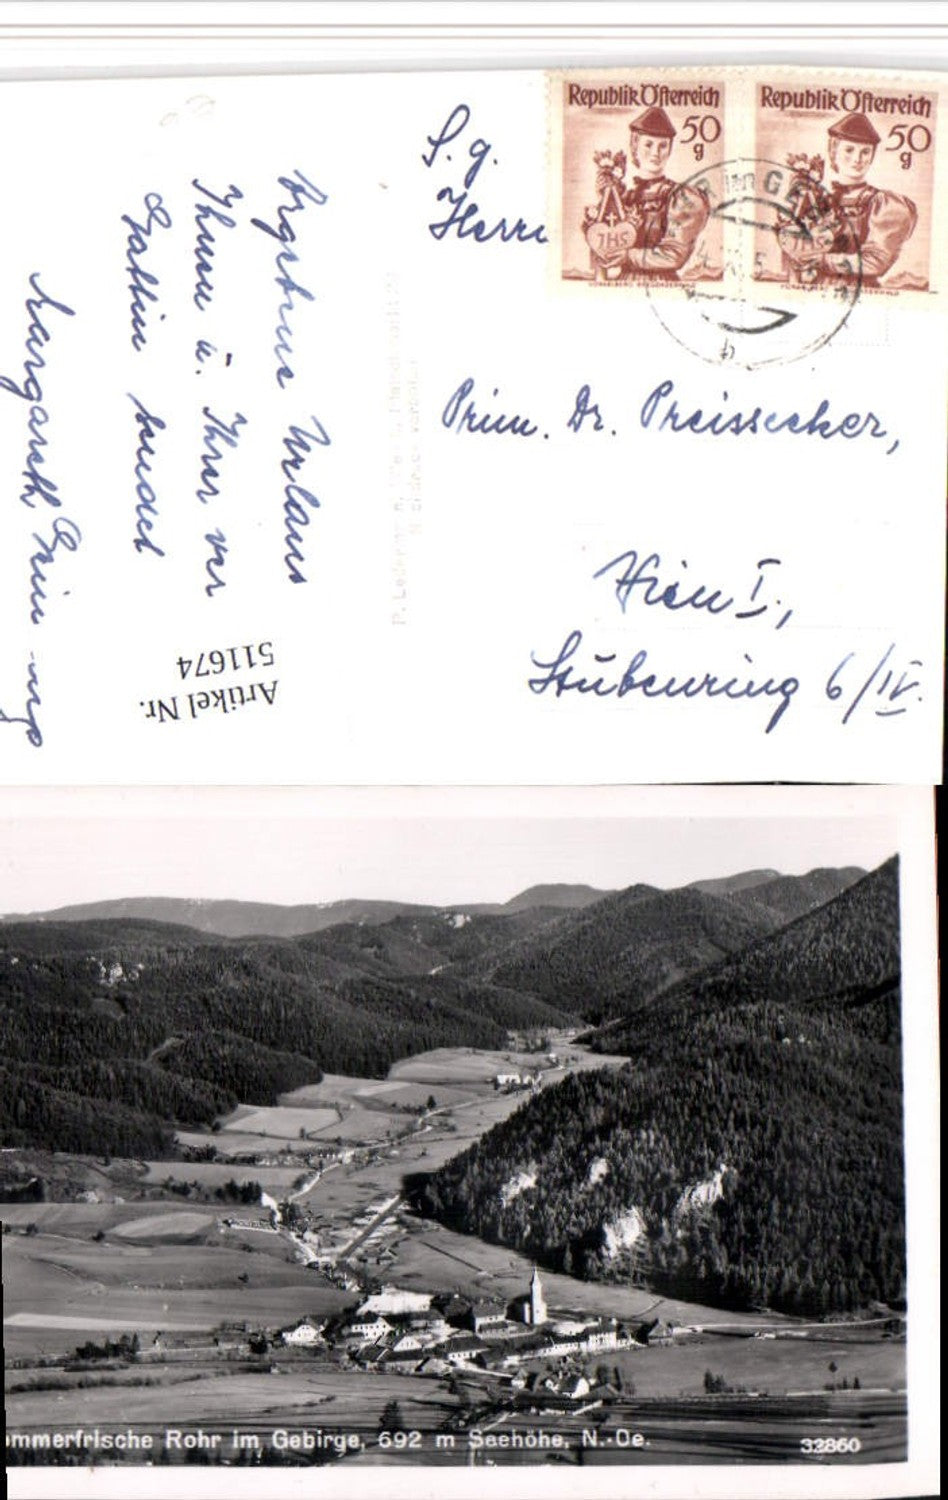 Republik Österreich
50
g
JHS
Republik Österreich
50
g
JHS
S. g.
Herrn
Prim. Dr. Preissecker,
Wien I.,
Stubenring 6/IV.
Ergebene Urlaus
Ihnen u. Ihrer ver
Gattin sendet
Margareth
Artikel Nr.
511674
ommerfrische Rohr im Gebirge, 692 m Seehöhe, N.-Oe.
32860